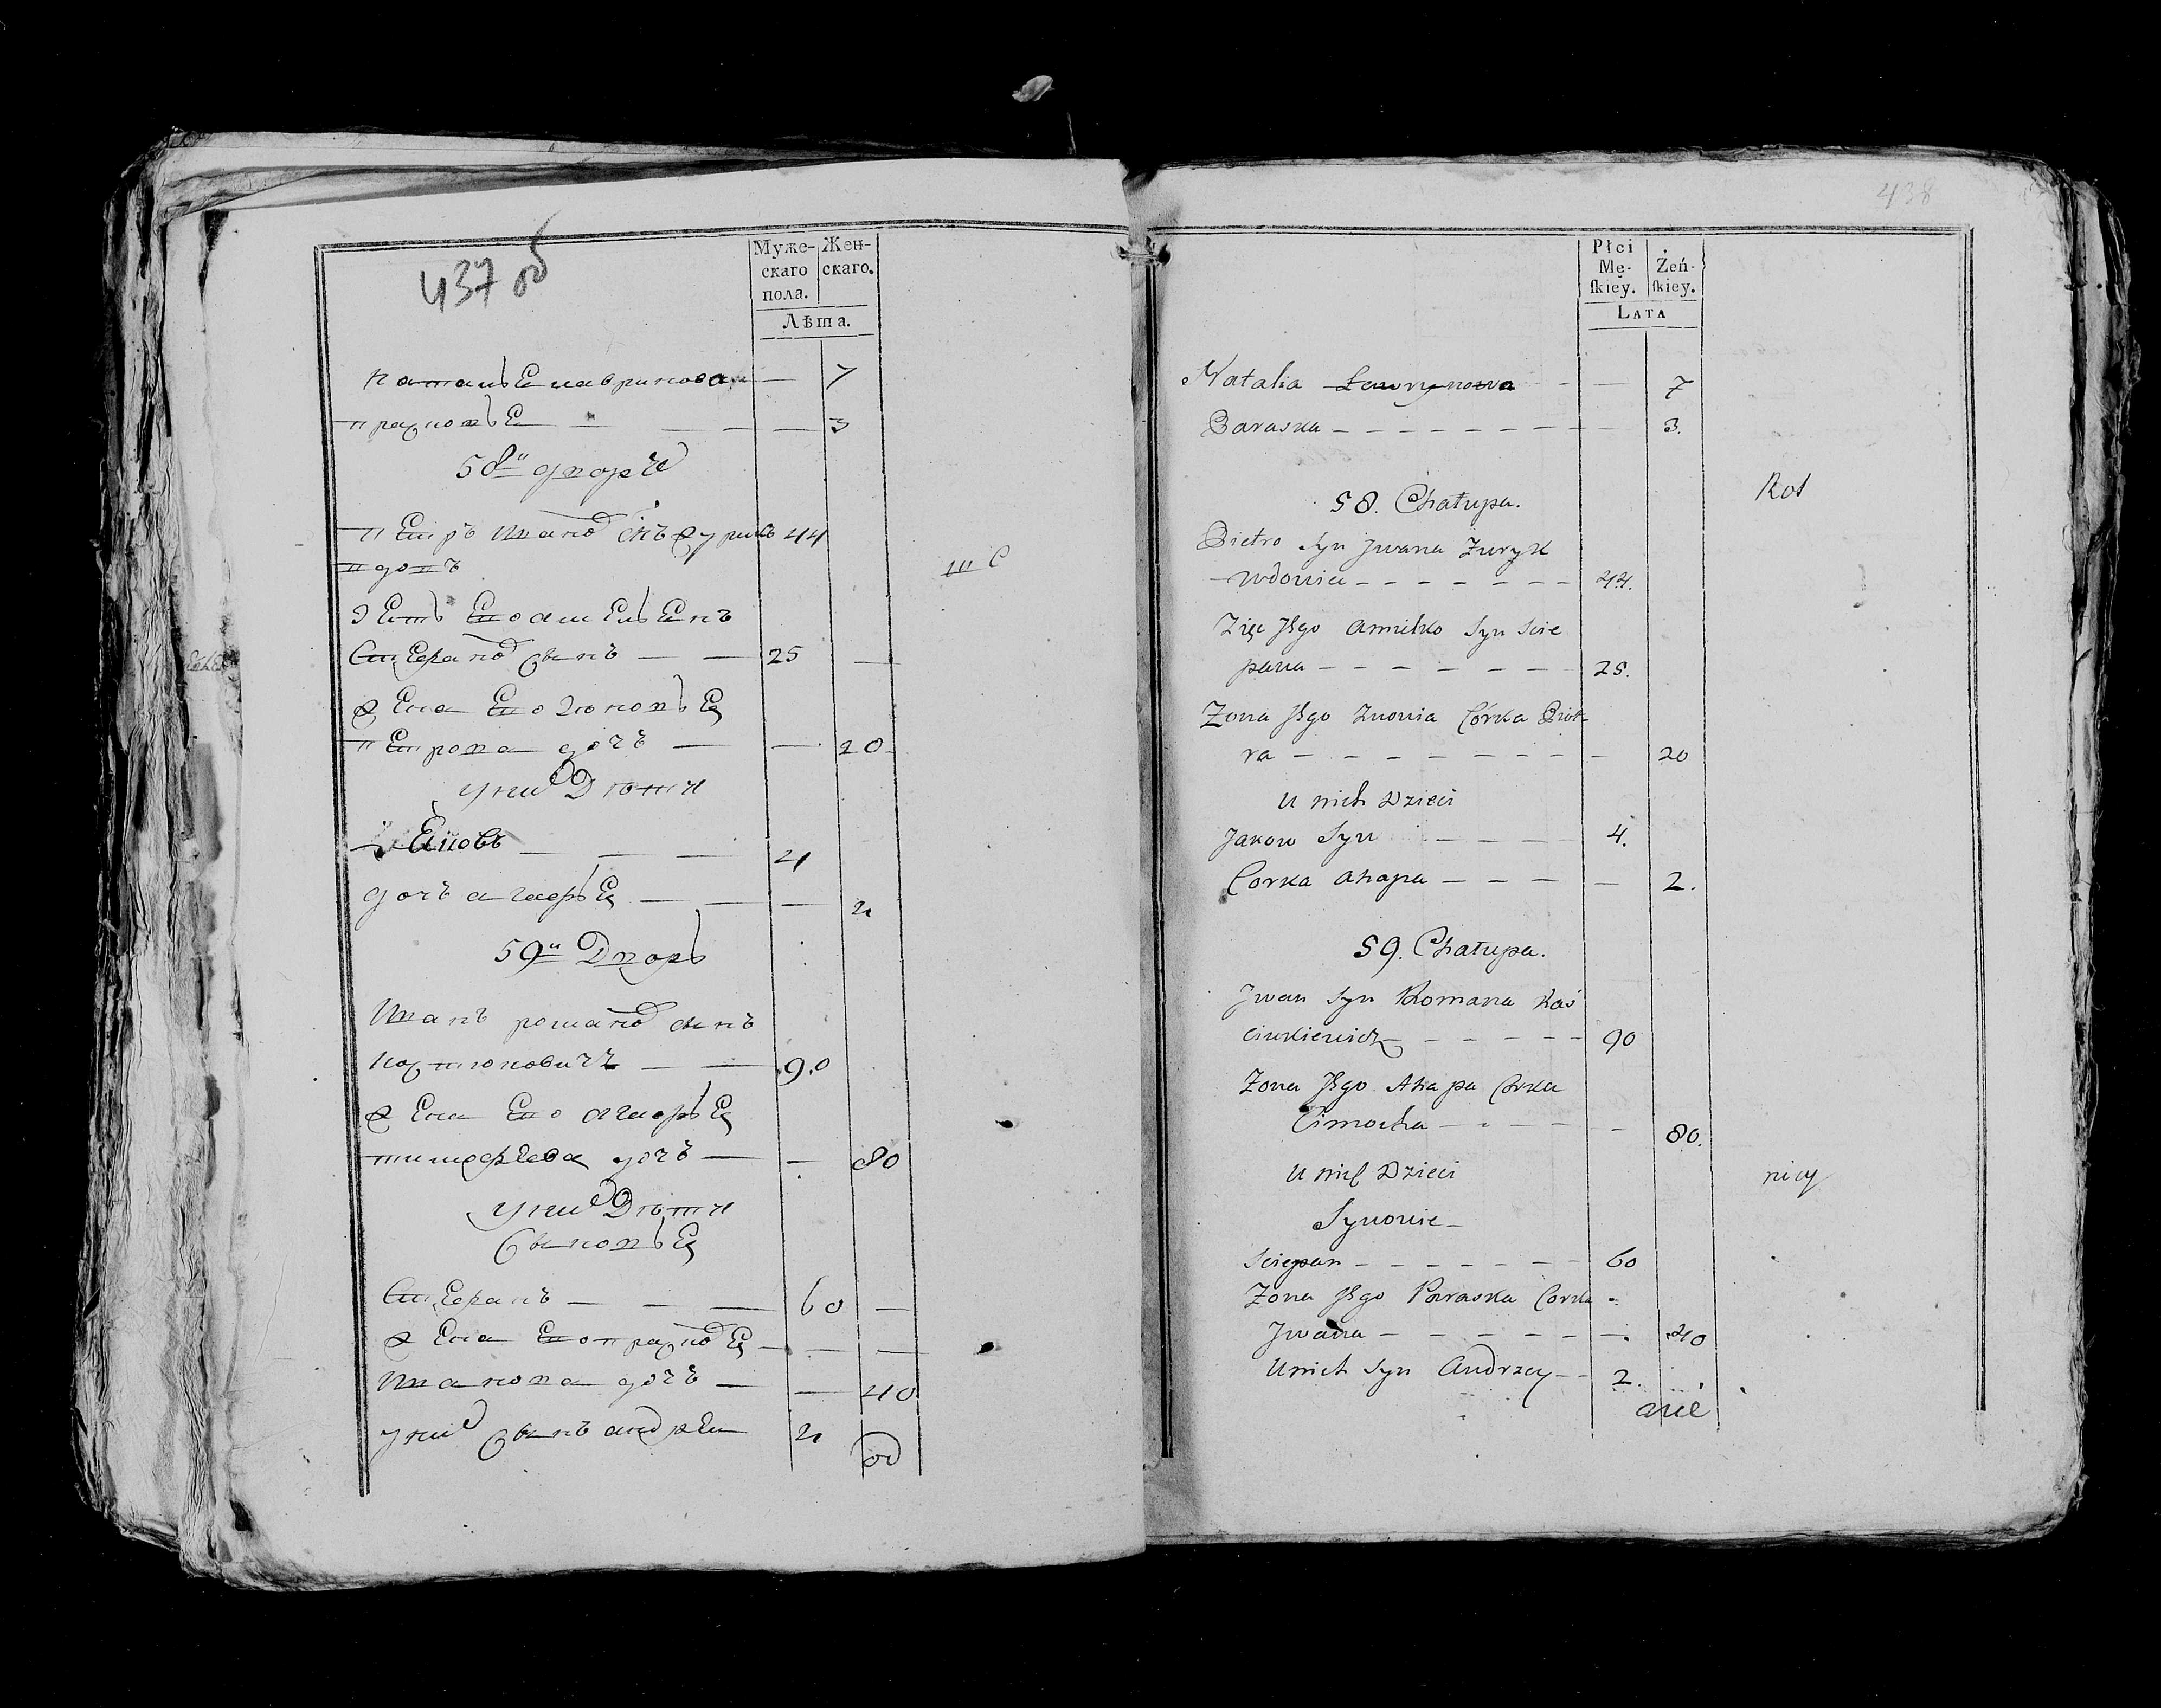 437 об
Муже-
скаго
пола.
Жен-
скаго.
Лѣта.
Наталья Лавринова — 7
Прасковья — — — — 3
58й дворъ
Петръ Ивановъ снъ Журикъ 44
вдовъ
Зеть ево амельенъ
Стефановъ сынъ — — 25 —
жена ево Зиновья
Петрова дочъ — — 20
у них Дети
Яковъ — — — 4
дочъ агафья — — — 2
59й Дворъ
Иванъ романовъ сынъ
костюковичъ — — 90
жена ево агафья
тимофеева дочъ — — 80
у них Дети
Сыновья
Стефанъ — — — 60 —
жена ево прасковья — — —
Иванова дочъ — — 40
у них сынъ андреи 2
438
Płci
Mę-
ſkiey.
Żeń-
ſkiey.
LATA
Natalia Ławrynowa - - — 7
Paraska - - - - - - - - - 3.
58. Chałupa.
Kos
Pietro Syn Jwana Żuryk
wdowiec - - - - - - - 44.
Zięc Jego Amielko Syn Scie
pana - - - - - - - 25.
Zona Jego Znowia Córka Piot-
ra - - - - - - - - 20
u nich Dzieci
Jakow Syn - - - - 4.
Corka Ahapa - - - - - 2.
59. Chałupa.
Jwan Syn Romana Kos
ciukiewicz - - - - - 90
Zona Jego Ahapa Córka
Cimocha - - - - - 80.
u nich Dzieci
nicy
Synowie -
Sciepan - - - - - - - 60
Zona Jego Paraska Corka -
Jwana - - - - - - - 40
U nich Syn Andrzey - - 2.